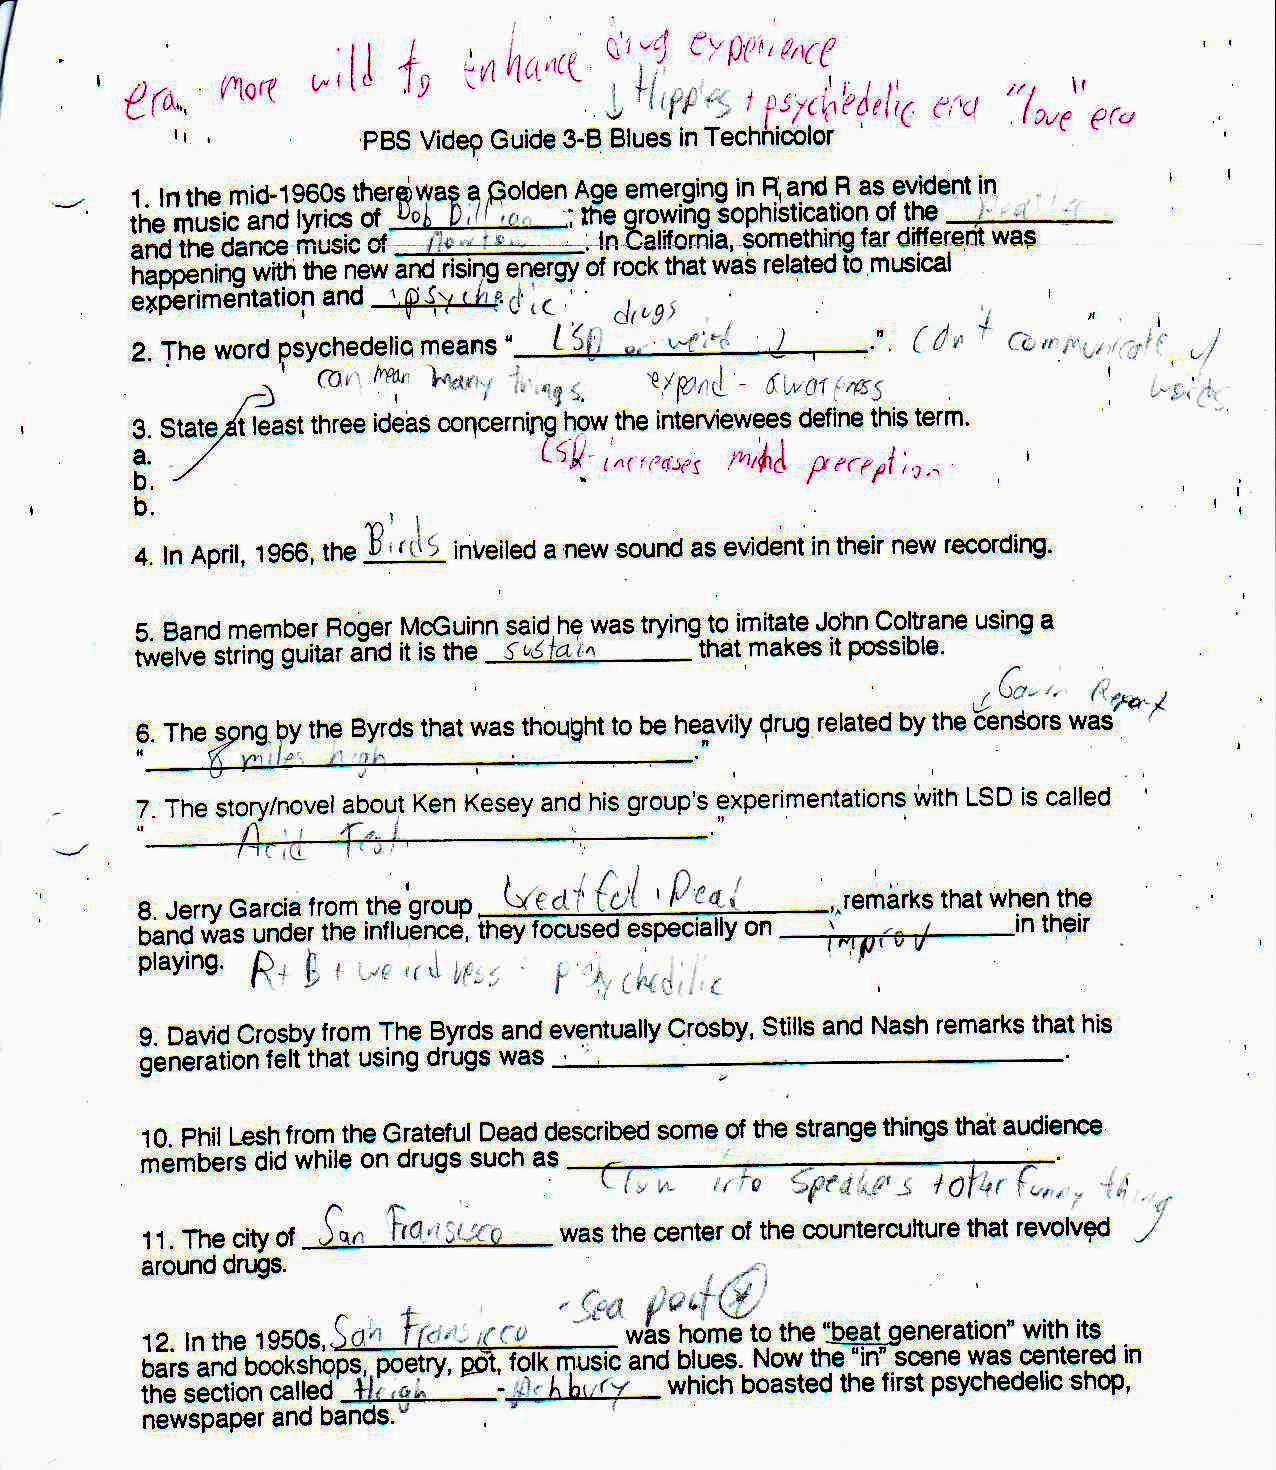 era more wild to enhance drug experience
↓ Hippies + psychedelic era "love" era
PBS Video Guide 3-B Blues in Technicolor
1. In the mid-1960s there was a Golden Age emerging in R and R as evident in
the music and lyrics of Bob Dillion; the growing sophistication of the
and the dance music of Motown. In California, something far different was
happening with the new and rising energy of rock that was related to musical
experimentation and psychedic
drugs
2. The word psychedelic means "LSD or weird". Can't communicate w/
can mean many things. expand - awareness words.
3. State at least three ideas concerning how the interviewees define this term.
a. LSD - increases mind preception
b.
b.
4. In April, 1966, the Birds inveiled a new sound as evident in their new recording.
5. Band member Roger McGuinn said he was trying to imitate John Coltrane using a
twelve string guitar and it is the sustain that makes it possible.
Gavin Report
6. The song by the Byrds that was thought to be heavily drug related by the censors was
"8 miles high."
7. The story/novel about Ken Kesey and his group's experimentations with LSD is called
"Acid Test."
8. Jerry Garcia from the group Greatful Dead, remarks that when the
band was under the influence, they focused especially on improv in their
playing. R + B + weirdness psychedilic
9. David Crosby from The Byrds and eventually Crosby, Stills and Nash remarks that his
generation felt that using drugs was ___.
10. Phil Lesh from the Grateful Dead described some of the strange things that audience
members did while on drugs such as ___.
into speakers + other funny thing
11. The city of San Fransisco was the center of the counterculture that revolved
around drugs.
- Sea port
12. In the 1950s, San Fransicco was home to the "beat generation" with its
bars and bookshops, poetry, pot, folk music and blues. Now the "in" scene was centered in
the section called Heigh - Ashbury which boasted the first psychedelic shop,
newspaper and bands.